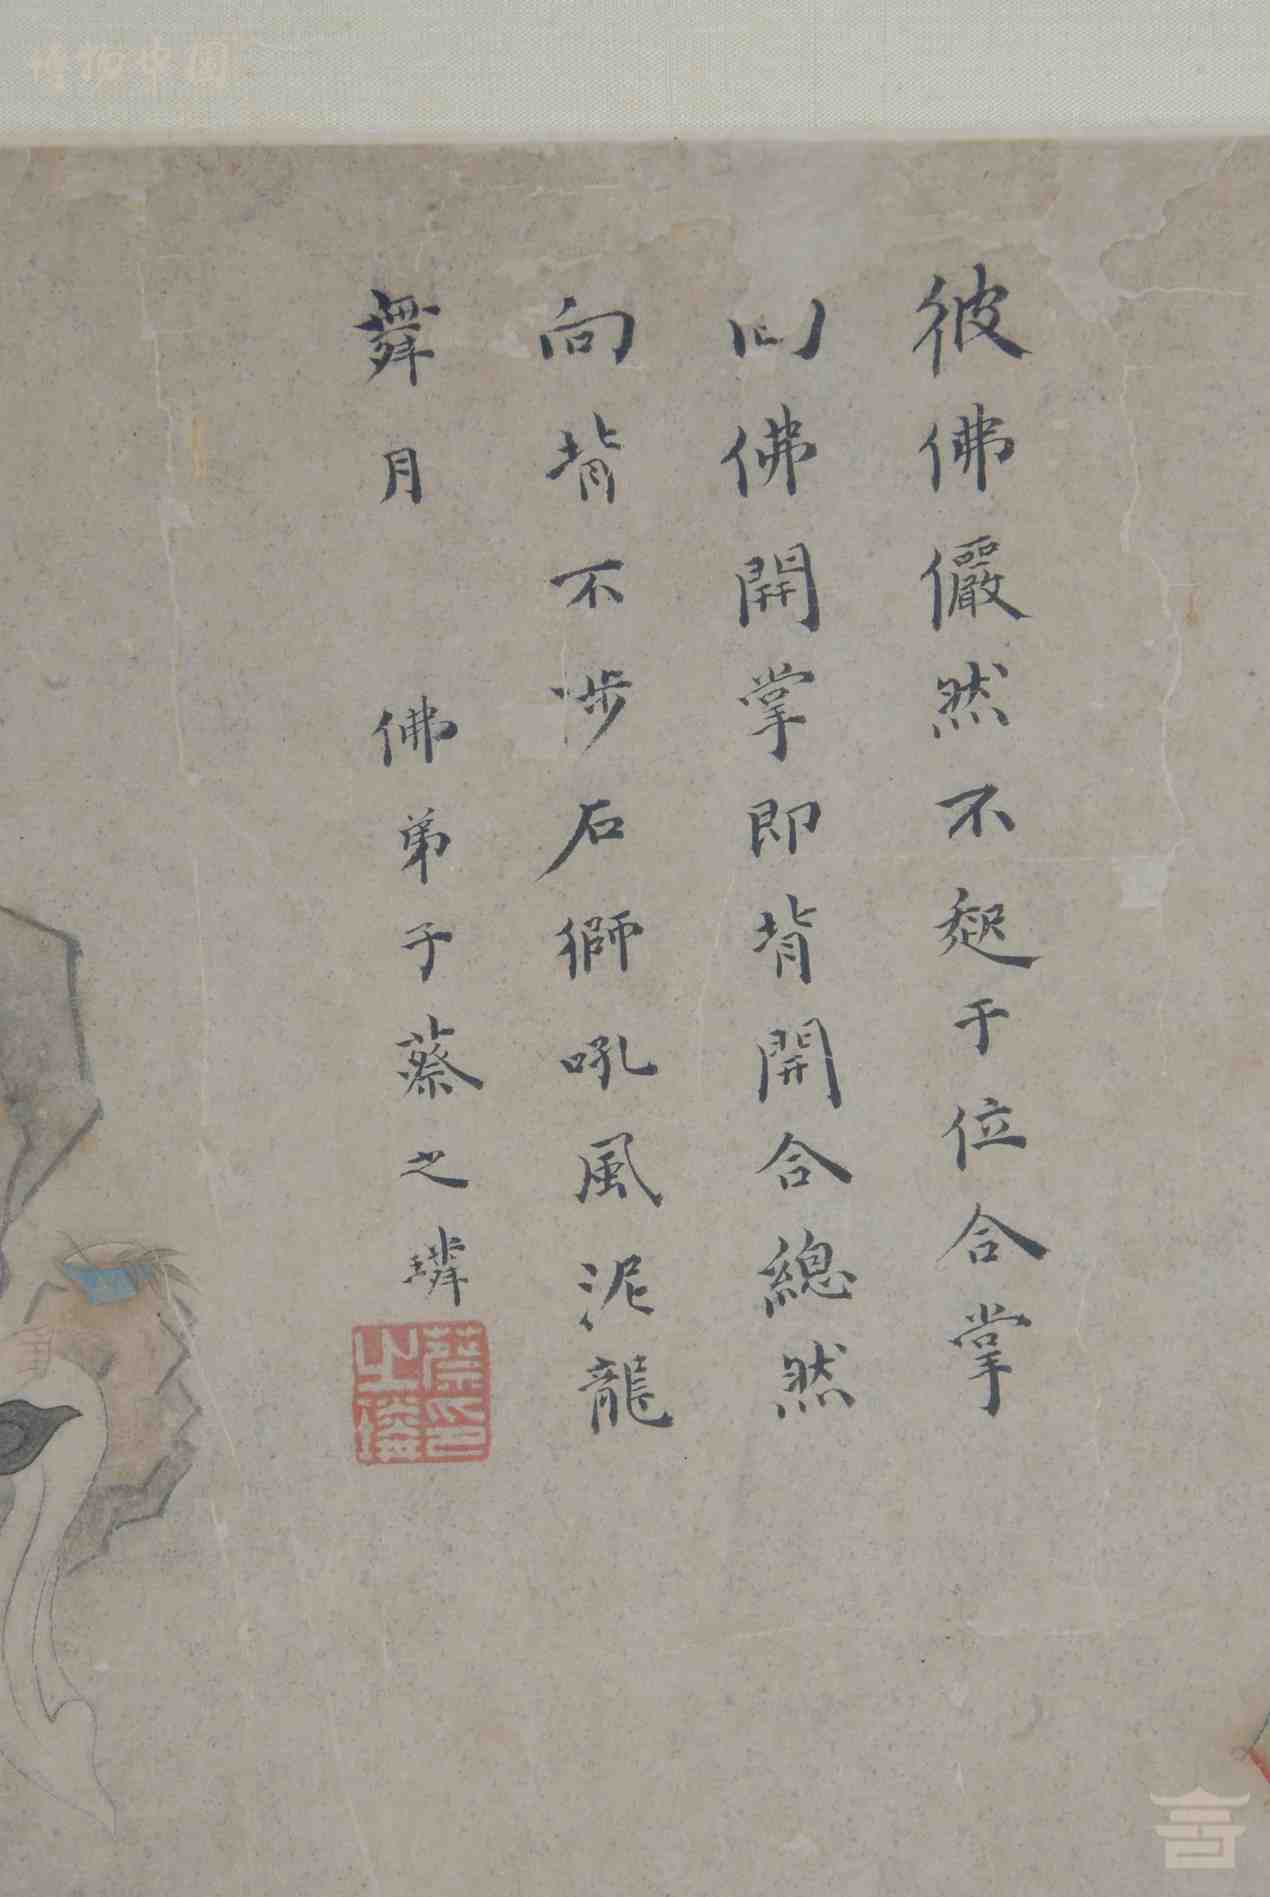 彼佛儼然不起于位合掌
向佛開掌即背開合總然
向背不涉石獅吼風泥龍
舞月 佛弟子蔡之璘
蔡印之璘
博物中國